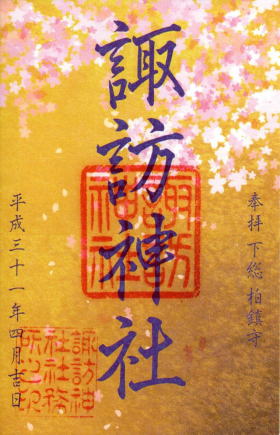 奉拝 下総 柏鎮守
諏訪神社
諏訪神社
平成三十一年四月吉日
諏訪神
社社務
所之印